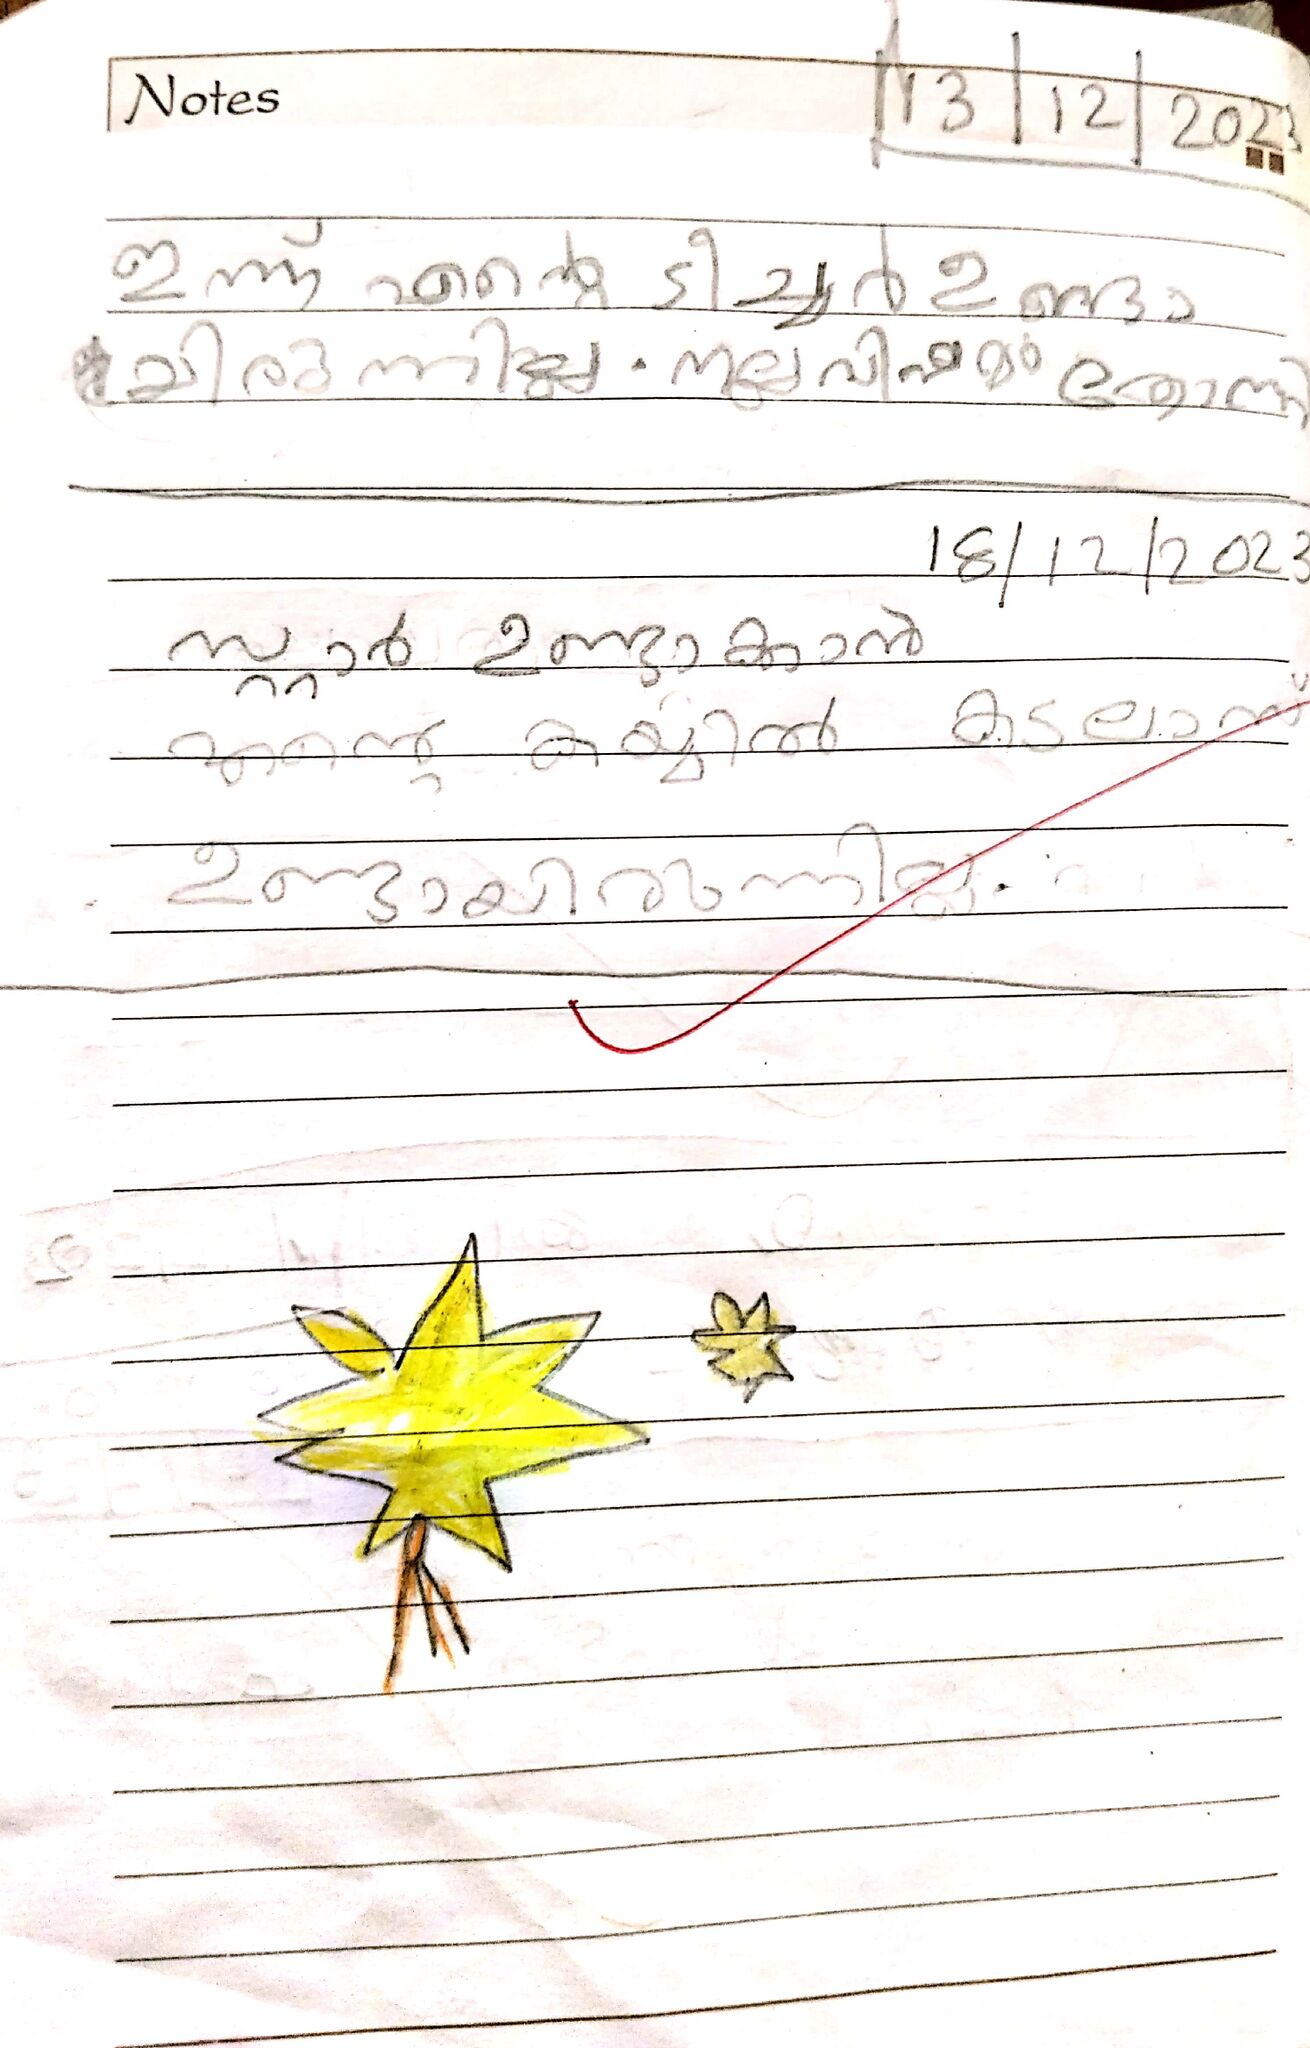 Notes
13/12/2023
ഇന്ന് എന്റെ ടീച്ചർ ഉണ്ടാ
യിരുന്നില്ല. നല്ല വിഷമം തോന്നി
18/12/2023
സ്റ്റാർ ഉണ്ടാക്കാൻ
എന്റെ കയ്യിൽ കടലാസ്
ഉണ്ടായിരുന്നില്ല.